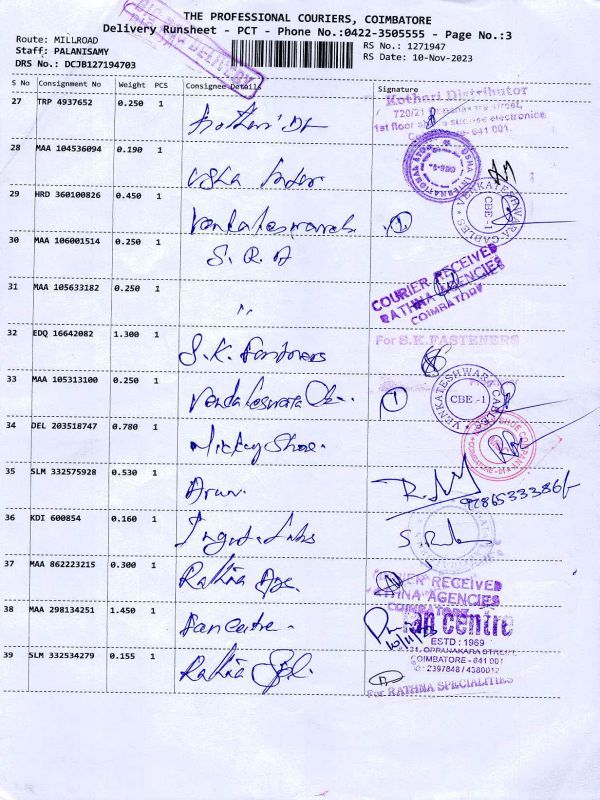 THE PROFESSIONAL COURIERS, COIMBATORE
Delivery Runsheet - PCT - Phone No.:0422-3505555 - Page No.:3
Route: MILLROAD
Staff: PALANISAMY
DRS No.: DCJB127194703
RS No.: 1271947
RS Date: 10-Nov-2023
S No Consignment No Weight PCS Consignee Details Signature
27 TRP 4937652 0.250 1 Kothari
Kothari Distributor
1st floor
641 001.
28 MAA 104536094 0.190 1 Usha Inter
29 HRD 360100826 0.450 1 Venkateswara
VENKATESHWARA CABLES
CBE-1
1
30 MAA 106001514 0.250 1 S. R. A
COURIER RECEIVED
RATHNA AGENCIES
COIMBATORE
31 MAA 105633182 0.250 1 "
32 EDQ 16642082 1.300 1 S.K. Fasteners
For S.K.FASTENERS
33 MAA 105313100 0.250 1 Venkateswara
1
VENKATESHWARA CABLES
CBE.-1
34 DEL 203518747 0.780 1 Mickey Shoe.
35 SLM 332575928 0.530 1 Arun.
36 KDI 600854 0.160 1
37 MAA 862223215 0.300 1 Rathna Age
RECEIVED
AGENCIES
COIMBATORE
38 MAA 298134251 1.450 1 Fan Centre.
fan centre
ESTD : 1969
OPPANAKARA STREET
COIMBATORE - 641 001
2397848 / 4380012
39 SLM 332534279 0.155 1 Rathna Spl.
For RATHNA SPECIALITIES